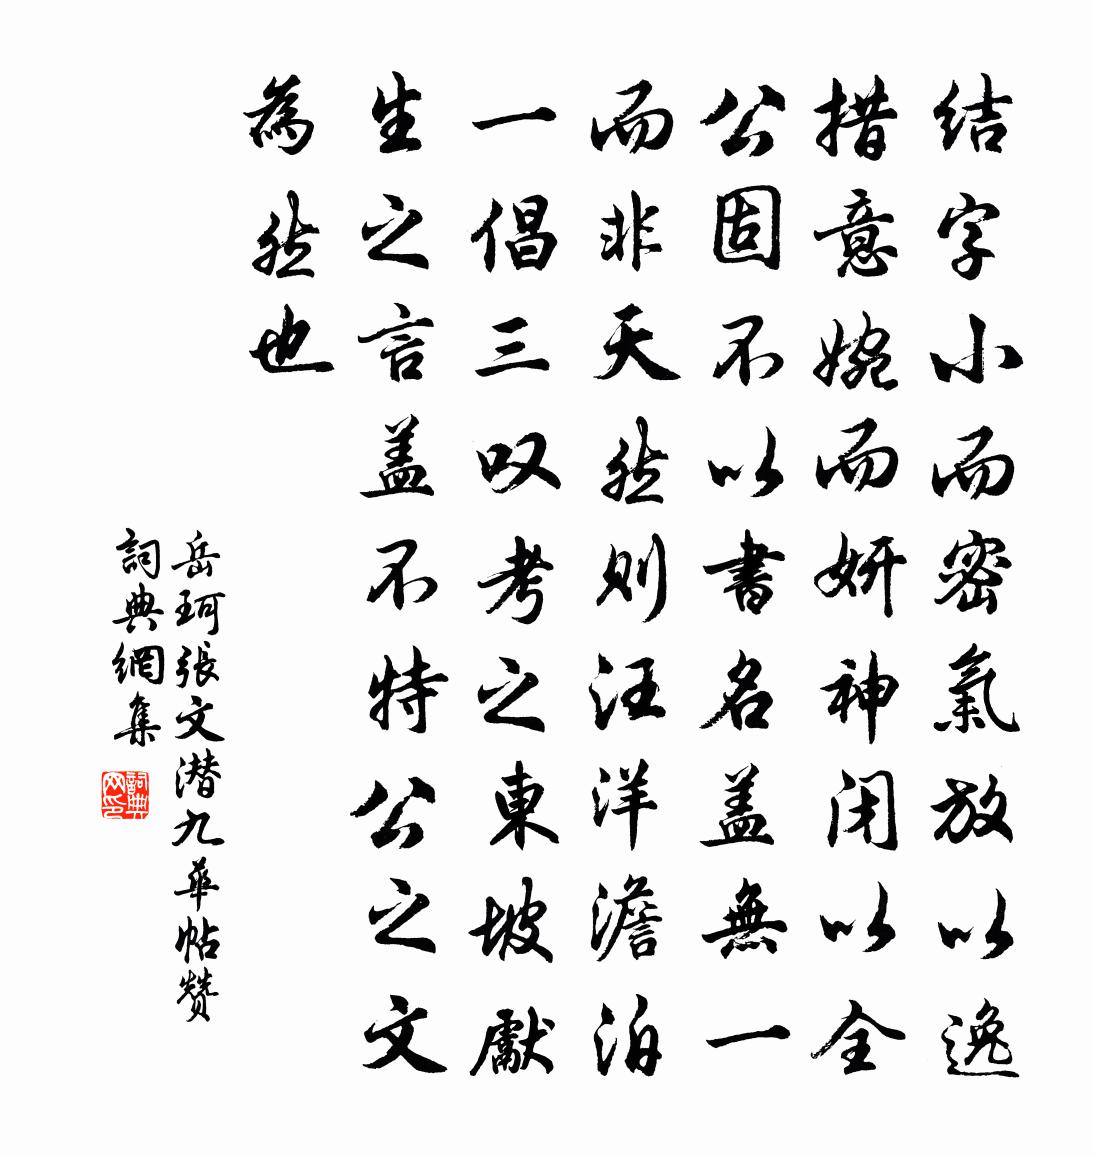 结字小而密氣放以逸
措意婉而妍神闭以全
公固不以書名盖無一
而非天然则汪洋澹泊
一倡三叹考之東坡獻
生之言盖不特公之文
為然也
岳珂張文潜九華帖赞
詞典網集
詞典网印